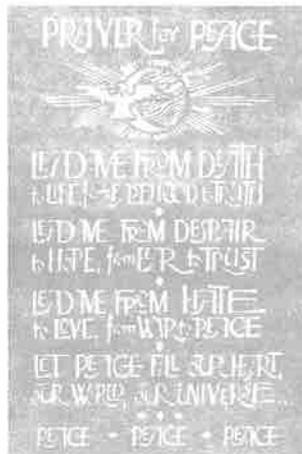 PRAYER for PEACE
LEAD ME FROM DEATH
to LIFE, from FALSEHOOD to TRUTH
LEAD ME FROM DESPAIR
to HOPE, from FEAR to TRUST
LEAD ME FROM HATE
to LOVE, from WAR to PEACE
LET PEACE FILL OUR HEART,
OUR WORLD, OUR UNIVERSE...
PEACE • PEACE • PEACE